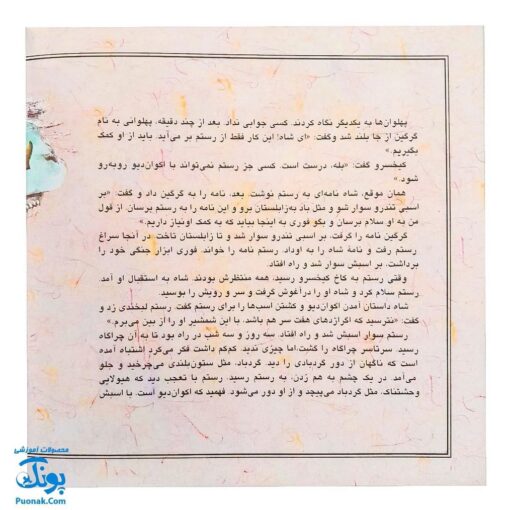 پهلوان‌ها به یکدیگر نگاه کردند. کسی جوابی نداد. بعد از چند دقیقه، پهلوانی به نام
گرگین از جا بلند شد وگفت: «ای شاه! این کار فقط از رستم بر می‌آید. باید از او کمک
بگیریم.»
کیخسرو گفت: «بله، درست است. کسی جز رستم نمی‌تواند با اکوان‌دیو روبه‌رو
شود.»
همان موقع، شاه نامه‌ای به رستم نوشت. بعد، نامه را به گرگین داد و گفت: «بر
اسبی تندرو سوار شو و مثل باد به‌زابلستان برو و این نامه را به رستم برسان. از قول
من به او سلام برسان و بگو فوری به اینجا بیاید که به کمک اونیاز داریم.»
گرگین نامه را گرفت، بر اسبی تندرو سوار شد و تا زابلستان تاخت. در آنجا سراغ
رستم رفت و نامهٔ شاه را به اوداد. رستم نامه را خواند. فوری ابزار جنگی خود را
برداشت، بر اسبش سوار شد و راه افتاد.
وقتی رستم به کاخ کیخسرو رسید، همه منتظرش بودند. شاه به استقبال او آمد.
رستم سلام کرد و شاه او را درآغوش گرفت و سر و رویش را بوسید.
شاه داستان آمدن اکوان‌دیو و کشتن اسب‌ها را برای رستم گفت. رستم لبخندی زد و
گفت: «نترسید که اگراژدهای هفت سر هم باشد، با این شمشیر او را از بین می‌برم.»
رستم سوار اسبش شد و راه افتاد. سه روز و سه شب در راه بود تا به آن چراگاه
رسید. سرتاسر چراگاه را گشت،اما چیزی ندید. کم‌کم داشت فکر می‌کرد اشتباه آمده
است که ناگهان از دور گردبادی را دید. گردباد، مثل ستون‌بلندی می‌چرخید و جلو
می‌آمد. در یک چشم به هم زدن، به رستم رسید. رستم با تعجب دید که هیولایی
وحشتناک، مثل گردباد می‌پیچد و از او دور می‌شود. فهمید که اکوان‌دیو است. با اسبش
محصولات آموزشی
پونک
Puonak.Com